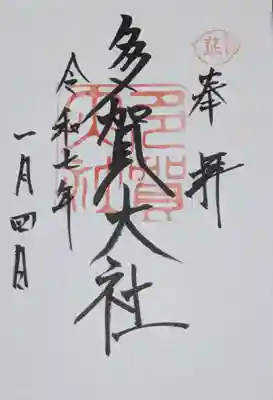 奉拝
多賀大社
令和七年
一月四日
多賀大社